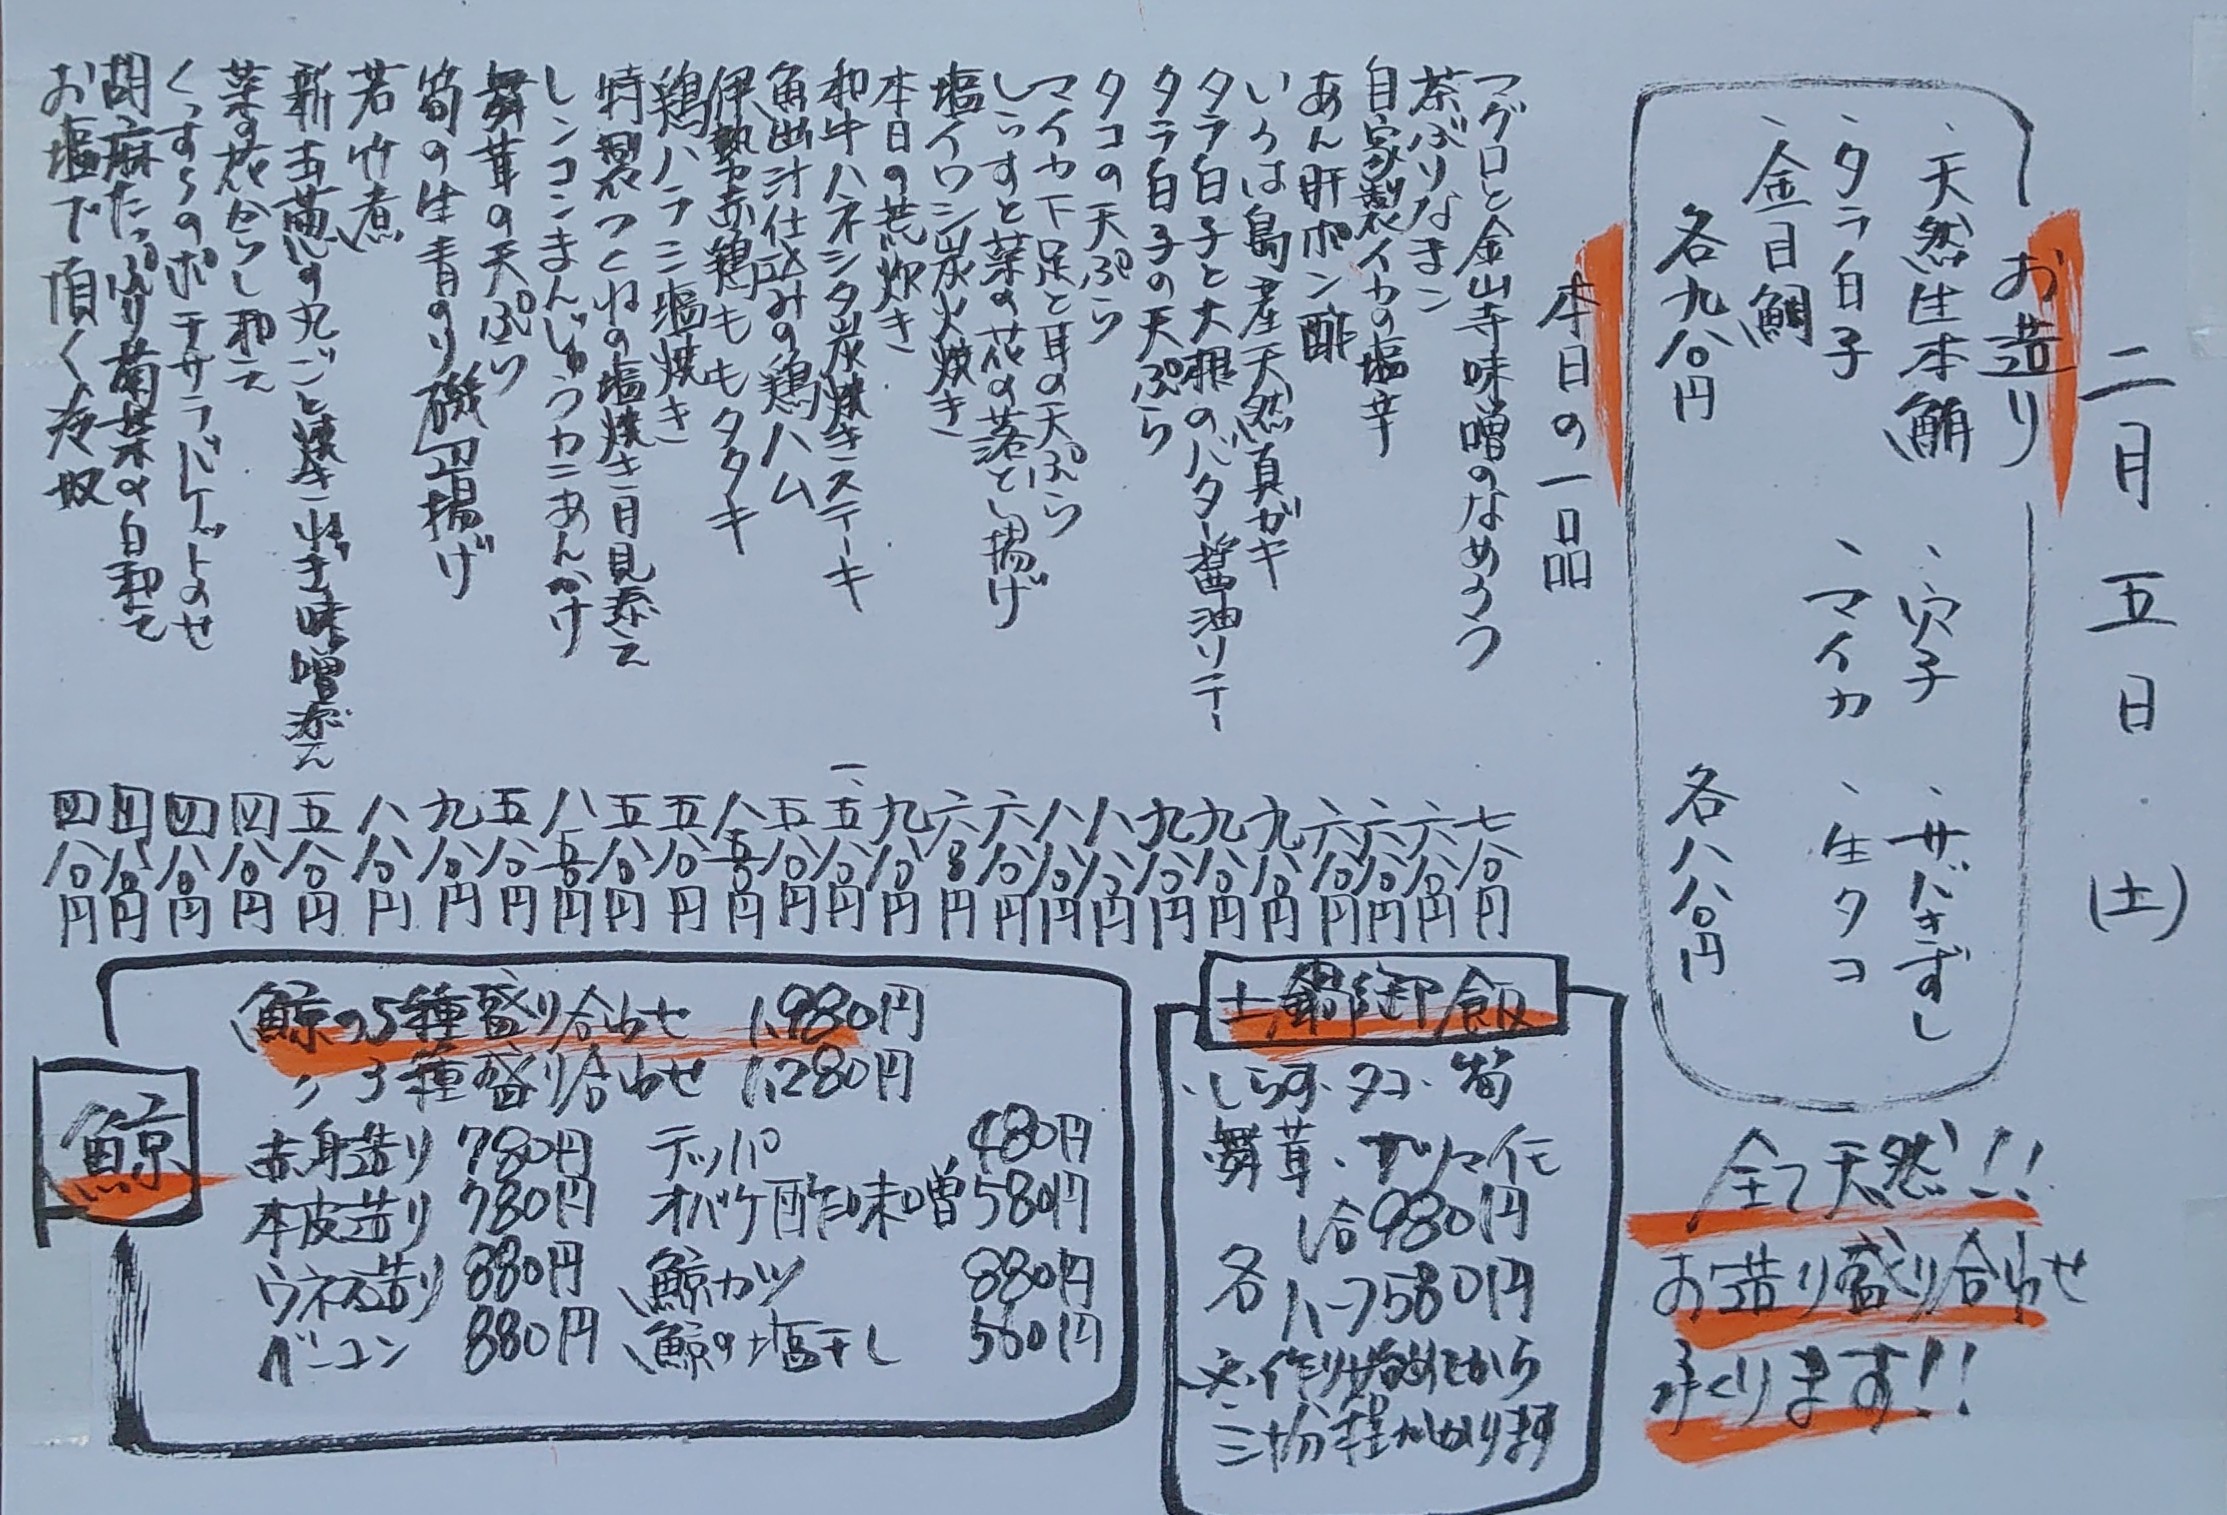 二月五日(土)
お造り
、天然生本鮪 、穴子 、サバきずし
、タラ白子 、マイカ 、生タコ
、金目鯛
各九八〇円 各八八〇円
全て天然!!
お造り盛り合わせ
承くります!!
本日の一品
マグロと金山寺味噌のなめろう 七八〇円
茶ぶりなまこ 六八〇円
自家製イカの塩辛 六八〇円
あん肝ポン酢 六八〇円
いろは島産天然真ガキ 九八〇円
タラ白子と大根のバター醤油ソテー 九八〇円
タラ白子の天ぷら 九八〇円
タコの天ぷら 八八〇円
マイカ下足と耳の天ぷら 八八〇円
しらすと菜の花の落とし揚げ 六八〇円
塩イワシ炭火焼き 六八〇円
本日の荒炊き 九八〇円
和牛ハネシタ炭焼きステーキ 一、五八〇円
魚出汁仕込みの鶏ハム 五八〇円
伊勢赤鶏ももタタキ 八五〇円
鶏ハラミ塩焼き 五八〇円
特製つくねの塩焼き月見添え 五八〇円
レンコンまんじゅうカニあんかけ 八五〇円
舞茸の天ぷら 五八〇円
筍の生青のり磯辺揚げ 九八〇円
若竹煮 八八〇円
新玉葱の丸ごと焼き 味噌添え 五八〇円
菜の花からし和え 四八〇円
くんすらのポテサラバケットのせ 四八〇円
胡麻たっぷり菊菜の白和え 四八〇円
お塩で頂く冷奴 四八〇円
土鍋御飯
・しらす・タコ・筍
舞茸・サツマイモ
各 1合980円
ハーフ580円
※作り始めてから
三十分程かかります
鯨
鯨の5種盛り合わせ 1,980円
〃 3種盛り合わせ 1,280円
赤身造り 780円 テッパ 480円
本皮造り 780円 オバケ酢味噌 580円
ウネス造り 880円 鯨カツ 880円
ベーコン 880円 鯨の塩干し 580円